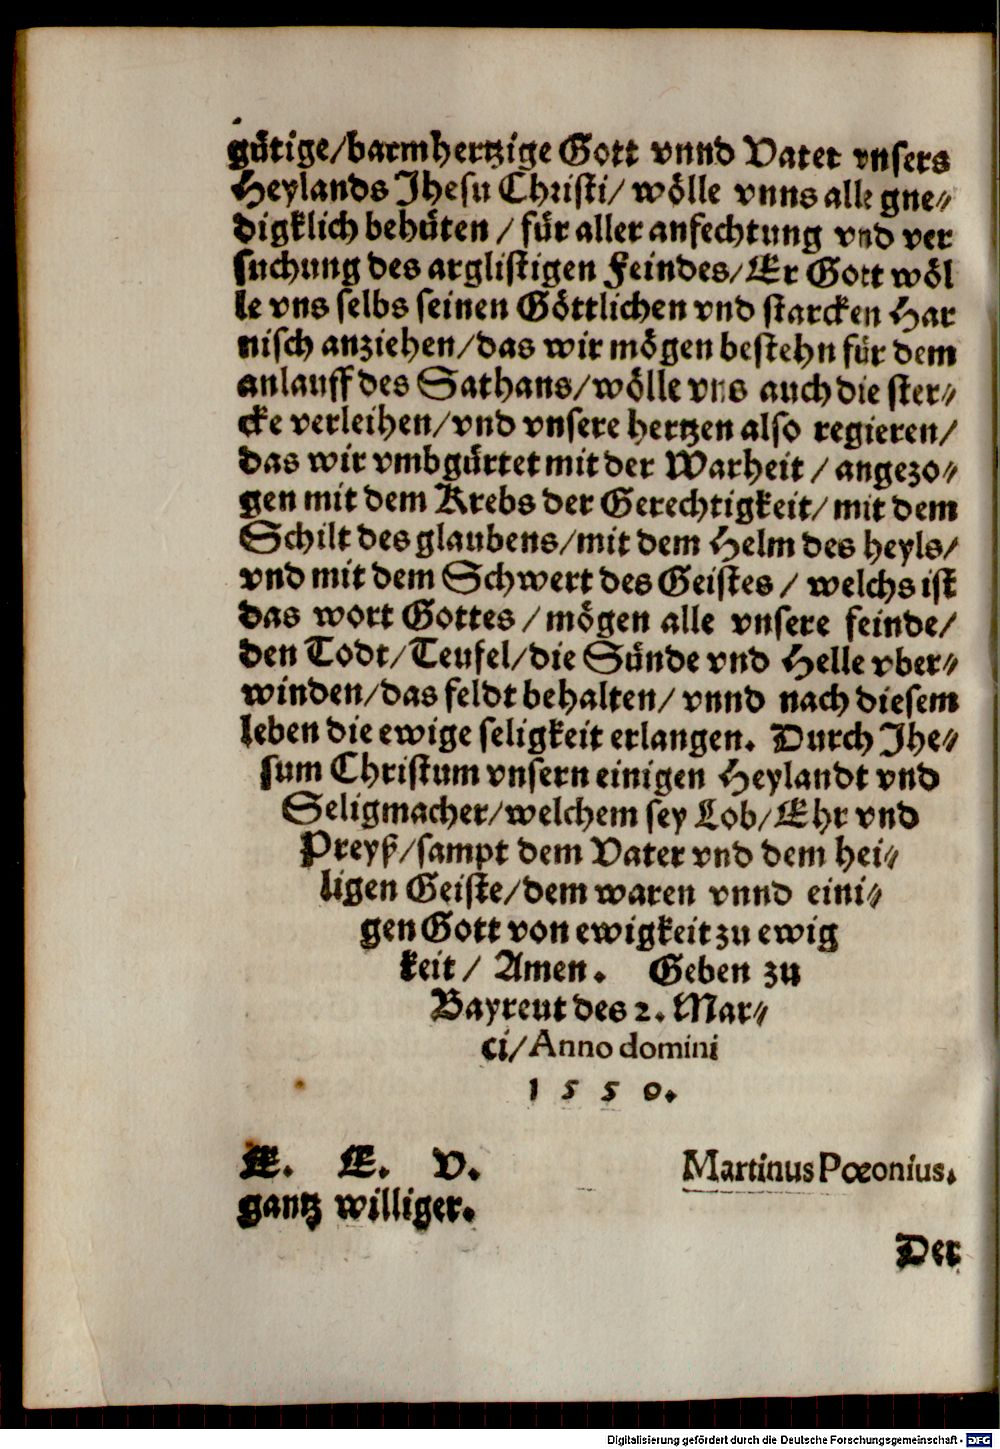 gütige/barmhertzige Gott vnnd Vater vnsers
Heylands Jhesu Christi/ wölle vnns alle gne⸗
digklich behüten / für aller anfechtung vnd ver
suchung des arglistigen Feindes/Er Gott wöl
le vns selbs seinen Göttlichen vnd starcken Har
nisch anziehen/das wir mögen bestehn für dem
anlauff des Sathans/wölle vns auch die ster⸗
cke verleihen/vnd vnsere hertzen also regieren/
das wir vmbgürtet mit der Warheit / angezo⸗
gen mit dem Krebs der Gerechtigkeit/ mit dem
Schilt des glaubens/mit dem Helm des heyls/
vnd mit dem Schwert des Geistes / welchs ist
das wort Gottes / mögen alle vnsere feinde/
den Todt/Teufel/die Sünde vnd Helle vber⸗
winden/das feldt behalten/ vnnd nach diesem
leben die ewige seligkeit erlangen. Durch Jhe⸗
sum Christum vnsern einigen Heylandt vnd
Seligmacher/welchem sey Lob/Ehr vnd
Preyß/sampt dem Vater vnd dem hei⸗
ligen Geiste/dem waren vnnd eini⸗
gen Gott von ewigkeit zu ewig
keit / Amen. Geben zu
Bayreut des 2. Mar⸗
ci/Anno domini
1 5 5 0.
E. E. V. Martinus Pœonius.
gantz williger.
Der
Digitalisierung gefördert durch die Deutsche Forschungsgemeinschaft - DFG